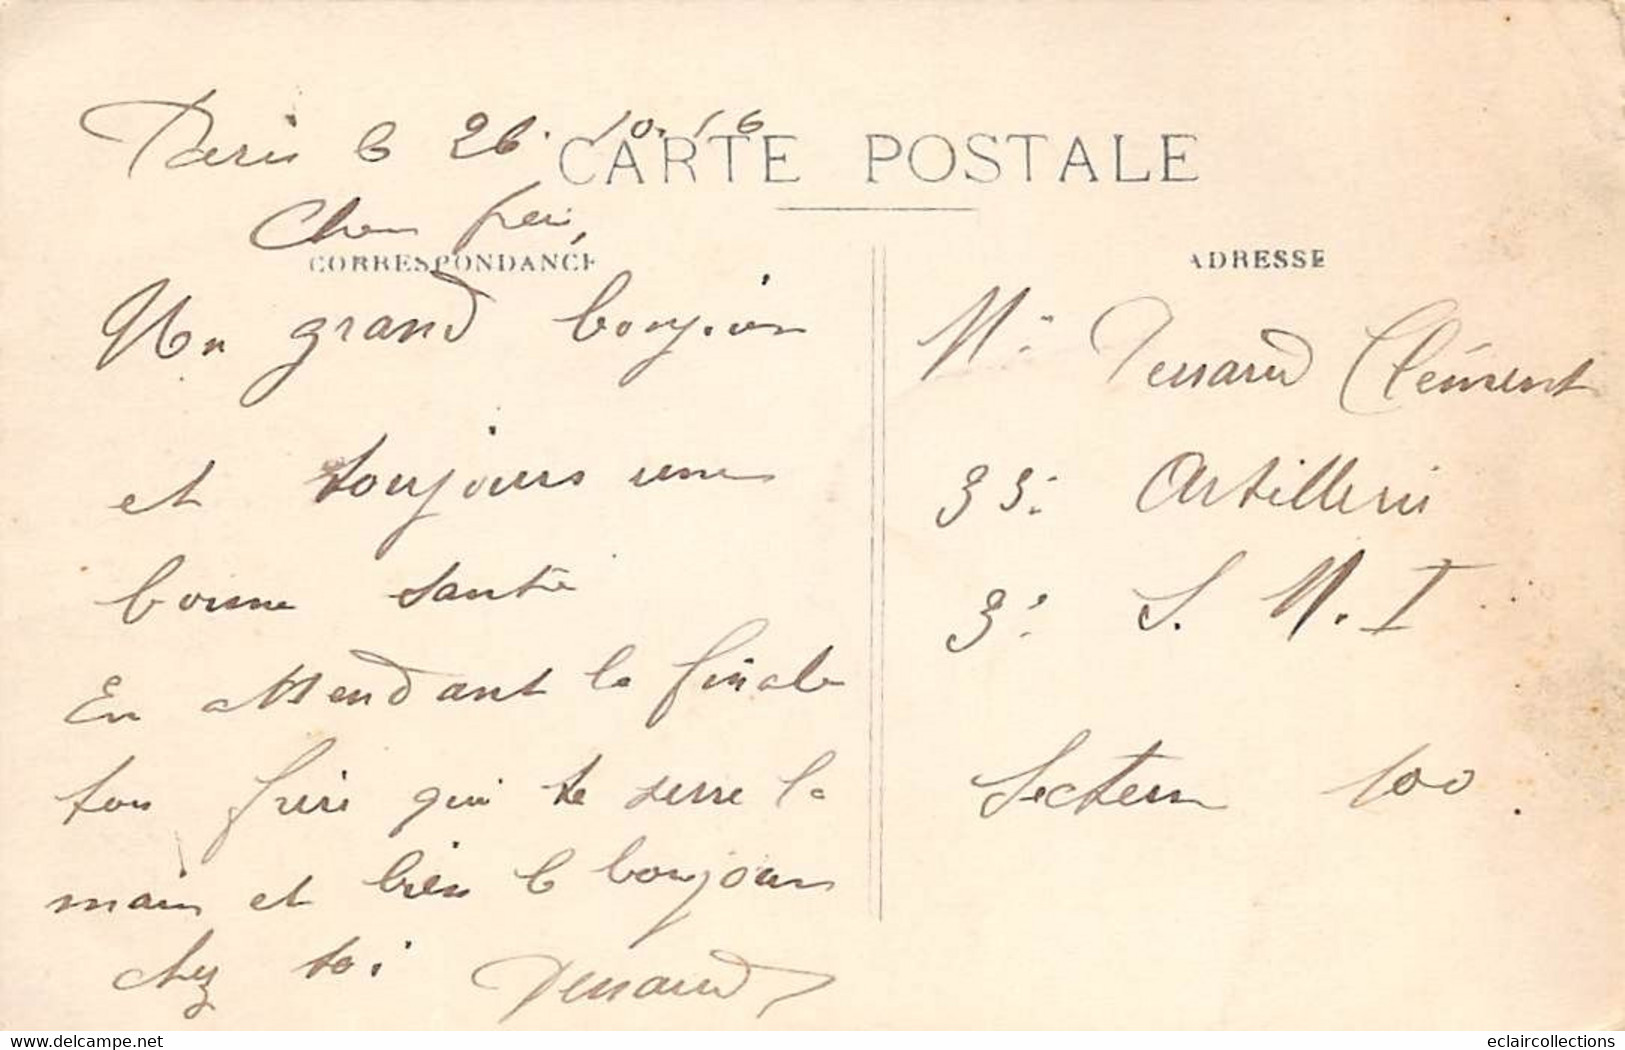 Paris le 26. 10. 16
CARTE POSTALE
Cher frère,
CORRESPONDANCE
Un grand bonjour
et toujours une
bonne santé
En attendant la finale
ton frère qui te serre la
main et bien le bonjour
chez toi
ADRESSE
Mr Clément
33e Artillerie
3e S. M. I
Secteur 100
Delcampe.net
eclaircollections